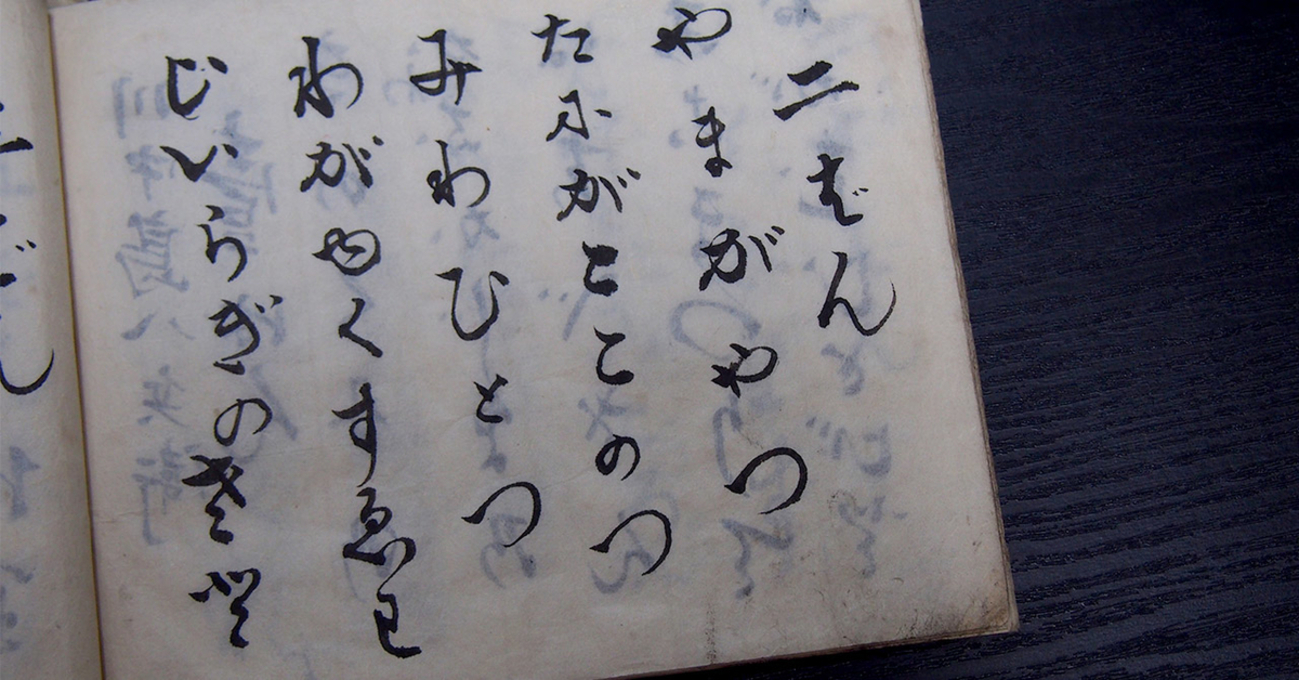 二ばん
やまがやつ
たにがこゝのつ
みわひとつ
わがゆくすゑわ
じいらぎの